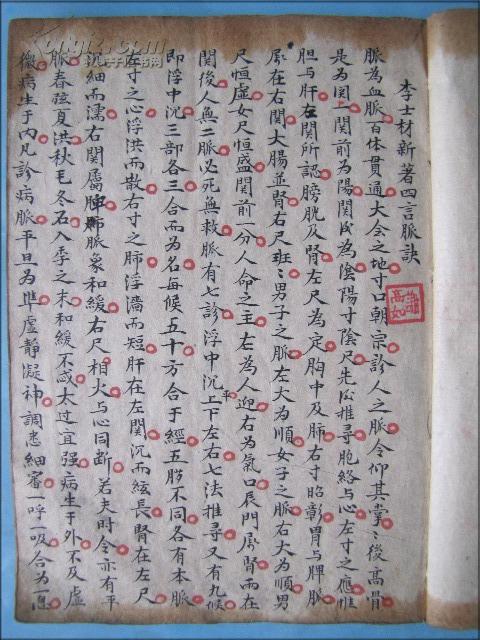 李士材新著四言脈訣
脈為血脈百体貫通大会之地寸口朝宗診人之脈令仰其掌〻後高骨
是為関上関前為陽関後為陰陽寸陰尺先後推尋胞絡与心左寸之應惟
胆与肝左関所認膀胱及腎左尺為定胸中及肺右寸昭彰胃与脾脈
属在右関大腸並腎右尺班〻男子之脈左大為順女子之脈右大為順男
尺恒虚女尺恒盛関前一分人命之主左為人迎右為氣口辰門属腎両在
関後人無二脈必死無救脈有七診浮中沉上下左右七法推尋又有九候
平
即浮中沉三部各三合而為名每候五十方合于經五臟不同各有本脈
左寸之心浮洪而散右寸之肺浮濇而短肝在左関沉而絃長腎在左尺
沉細而濡右関属脾脈象和緩右尺相火与心同断若夫時令亦有平
脈春弦夏洪秋毛冬石入季之末和緩不忒太过宜强病生于外不及虚
微病生于内凡診病脈平旦为準虛靜凝神調息細審一呼一吸合为一息